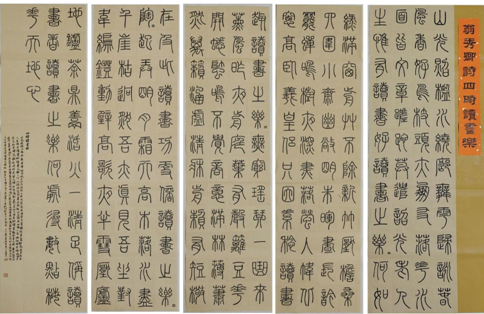 翁秀卿詩四時讀書樂
山光照檻水繞廊舞雩歸詠春
風香好鳥枝頭亦朋友落花水
面皆文章蹉跎莫遣韶光老人
生惟有讀書好讀書之樂樂何如
綠滿窗前草不除新竹壓檐桑
四圍小齋幽敞明朱曦晝長吟
罷蟬鳴樹夜深燼落螢入幃北
窗高臥羲皇侶只因素稔讀書
趣讀書之樂樂無窮瑤琴一曲來
薰風昨夜庭前葉有聲籬豆花
開蟋蟀鳴不覺商意滿林薄蕭
然萬籟涵虛清近床賴有短檠
在及此讀書功更倍讀書之樂樂
陶陶起弄明月霜天高木落水盡
千崖枯迥然吾亦見真吾坐對
韋編燈動壁高歌夜半雪壓廬
地爐茶鼎烹活火一清足稱讀
書者讀書之樂何處尋數點梅
花天地心